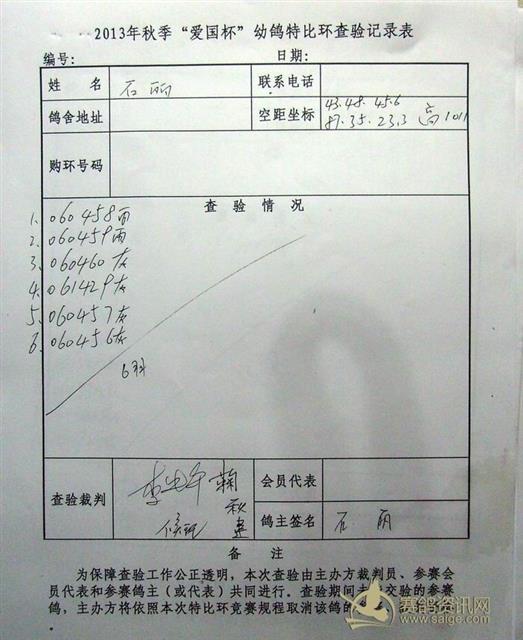 2013年秋季“爱国杯”幼鸽特比环查验记录表
编号： 日期：
姓名 石丽 联系电话
鸽舍地址 空距坐标 43.48.45.6
87.35.23.3 高1011
购环号码
查验情况
1. 060458雨
2. 060459雨
3. 060460灰
4. 061429灰
5. 060457灰
6. 060456灰
6羽
查验裁判 会员代表
鸽主签名 石丽
备注
为保障查验工作公正透明，本次查验由主办方裁判员、参赛会
员代表和参赛鸽主（或代表）共同进行。查验期间未交验的参赛
鸽，主办方将依照本次特比环竞赛规程取消该鸽的
赛鸽资讯网
www.saige.com